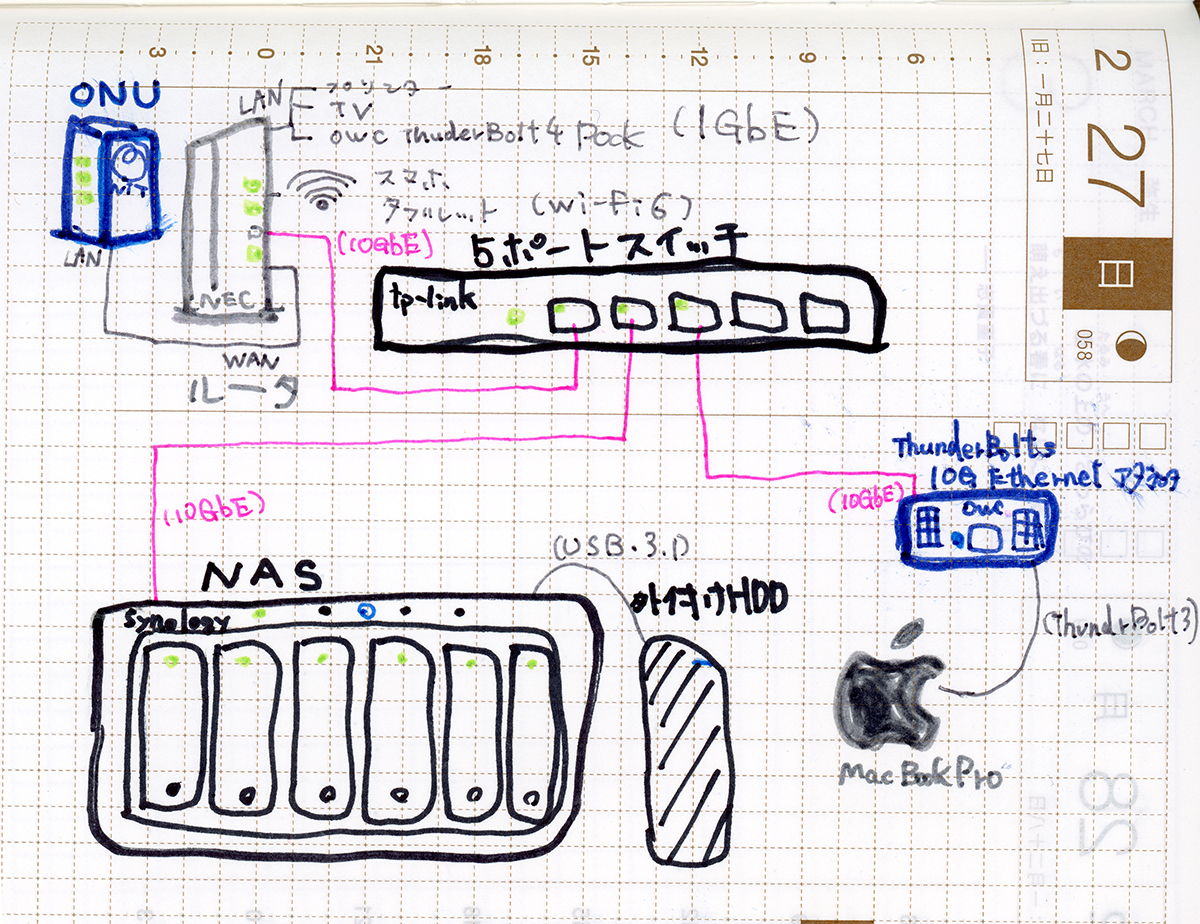 3 0 21 18 15 12 9 6
2 27
旧:一月二十七日
日
058
ONU
NTT
LAN
LAN
プリンター
TV
OWC ThuderBolt4 Dock (1GbE)
スマホ
タブレット (Wi-Fi6)
NEC
WAN
ルータ
(10GbE)
5ポートスイッチ
tp-link
(10GbE)
(10GbE)
ThunderBolt3
10G Ethernet アダプタ
OWC
NAS
Synology
(USB.3.1)
外付けHDD
(ThundrBolt3)
MacBookPro